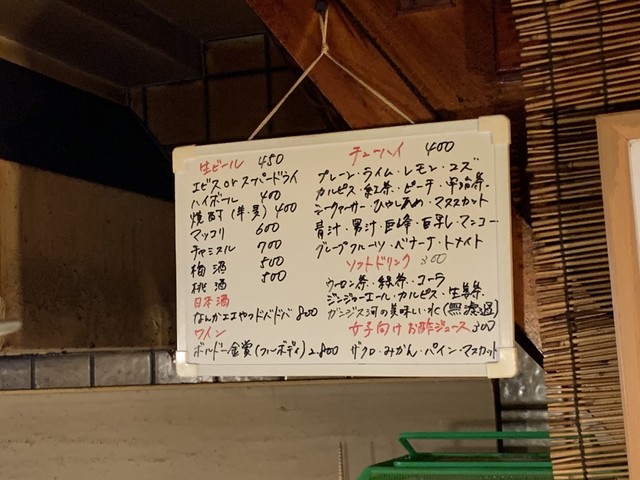 生ビール 450
エビス or スーパードライ
ハイボール 400
焼酎 (芋・麦) 400
マッコリ 600
チャミスル 700
梅酒 500
桃酒 500
日本酒
なんかエエやつドバドバ 800
ワイン
ボルドー金賞 (フルボディ) 2.800
チューハイ 400
プレーン・ライム・レモン・ユズ
カルピス・紅茶・ピーチ・
シークァーサー・ひやしあめ・マスカット
青汁・男汁・巨峰・巨乳・マンゴー
グレープフルーツ・バナナ・トマイト
ソフトドリンク 300
ウーロン茶・緑茶・コーラ
ジンジャーエール・カルピス・生姜茶
ガンジス河の美味しい水 (無濾過)
女子向け お酢ジュース 300
ザクロ・みかん・パイン・マスカット